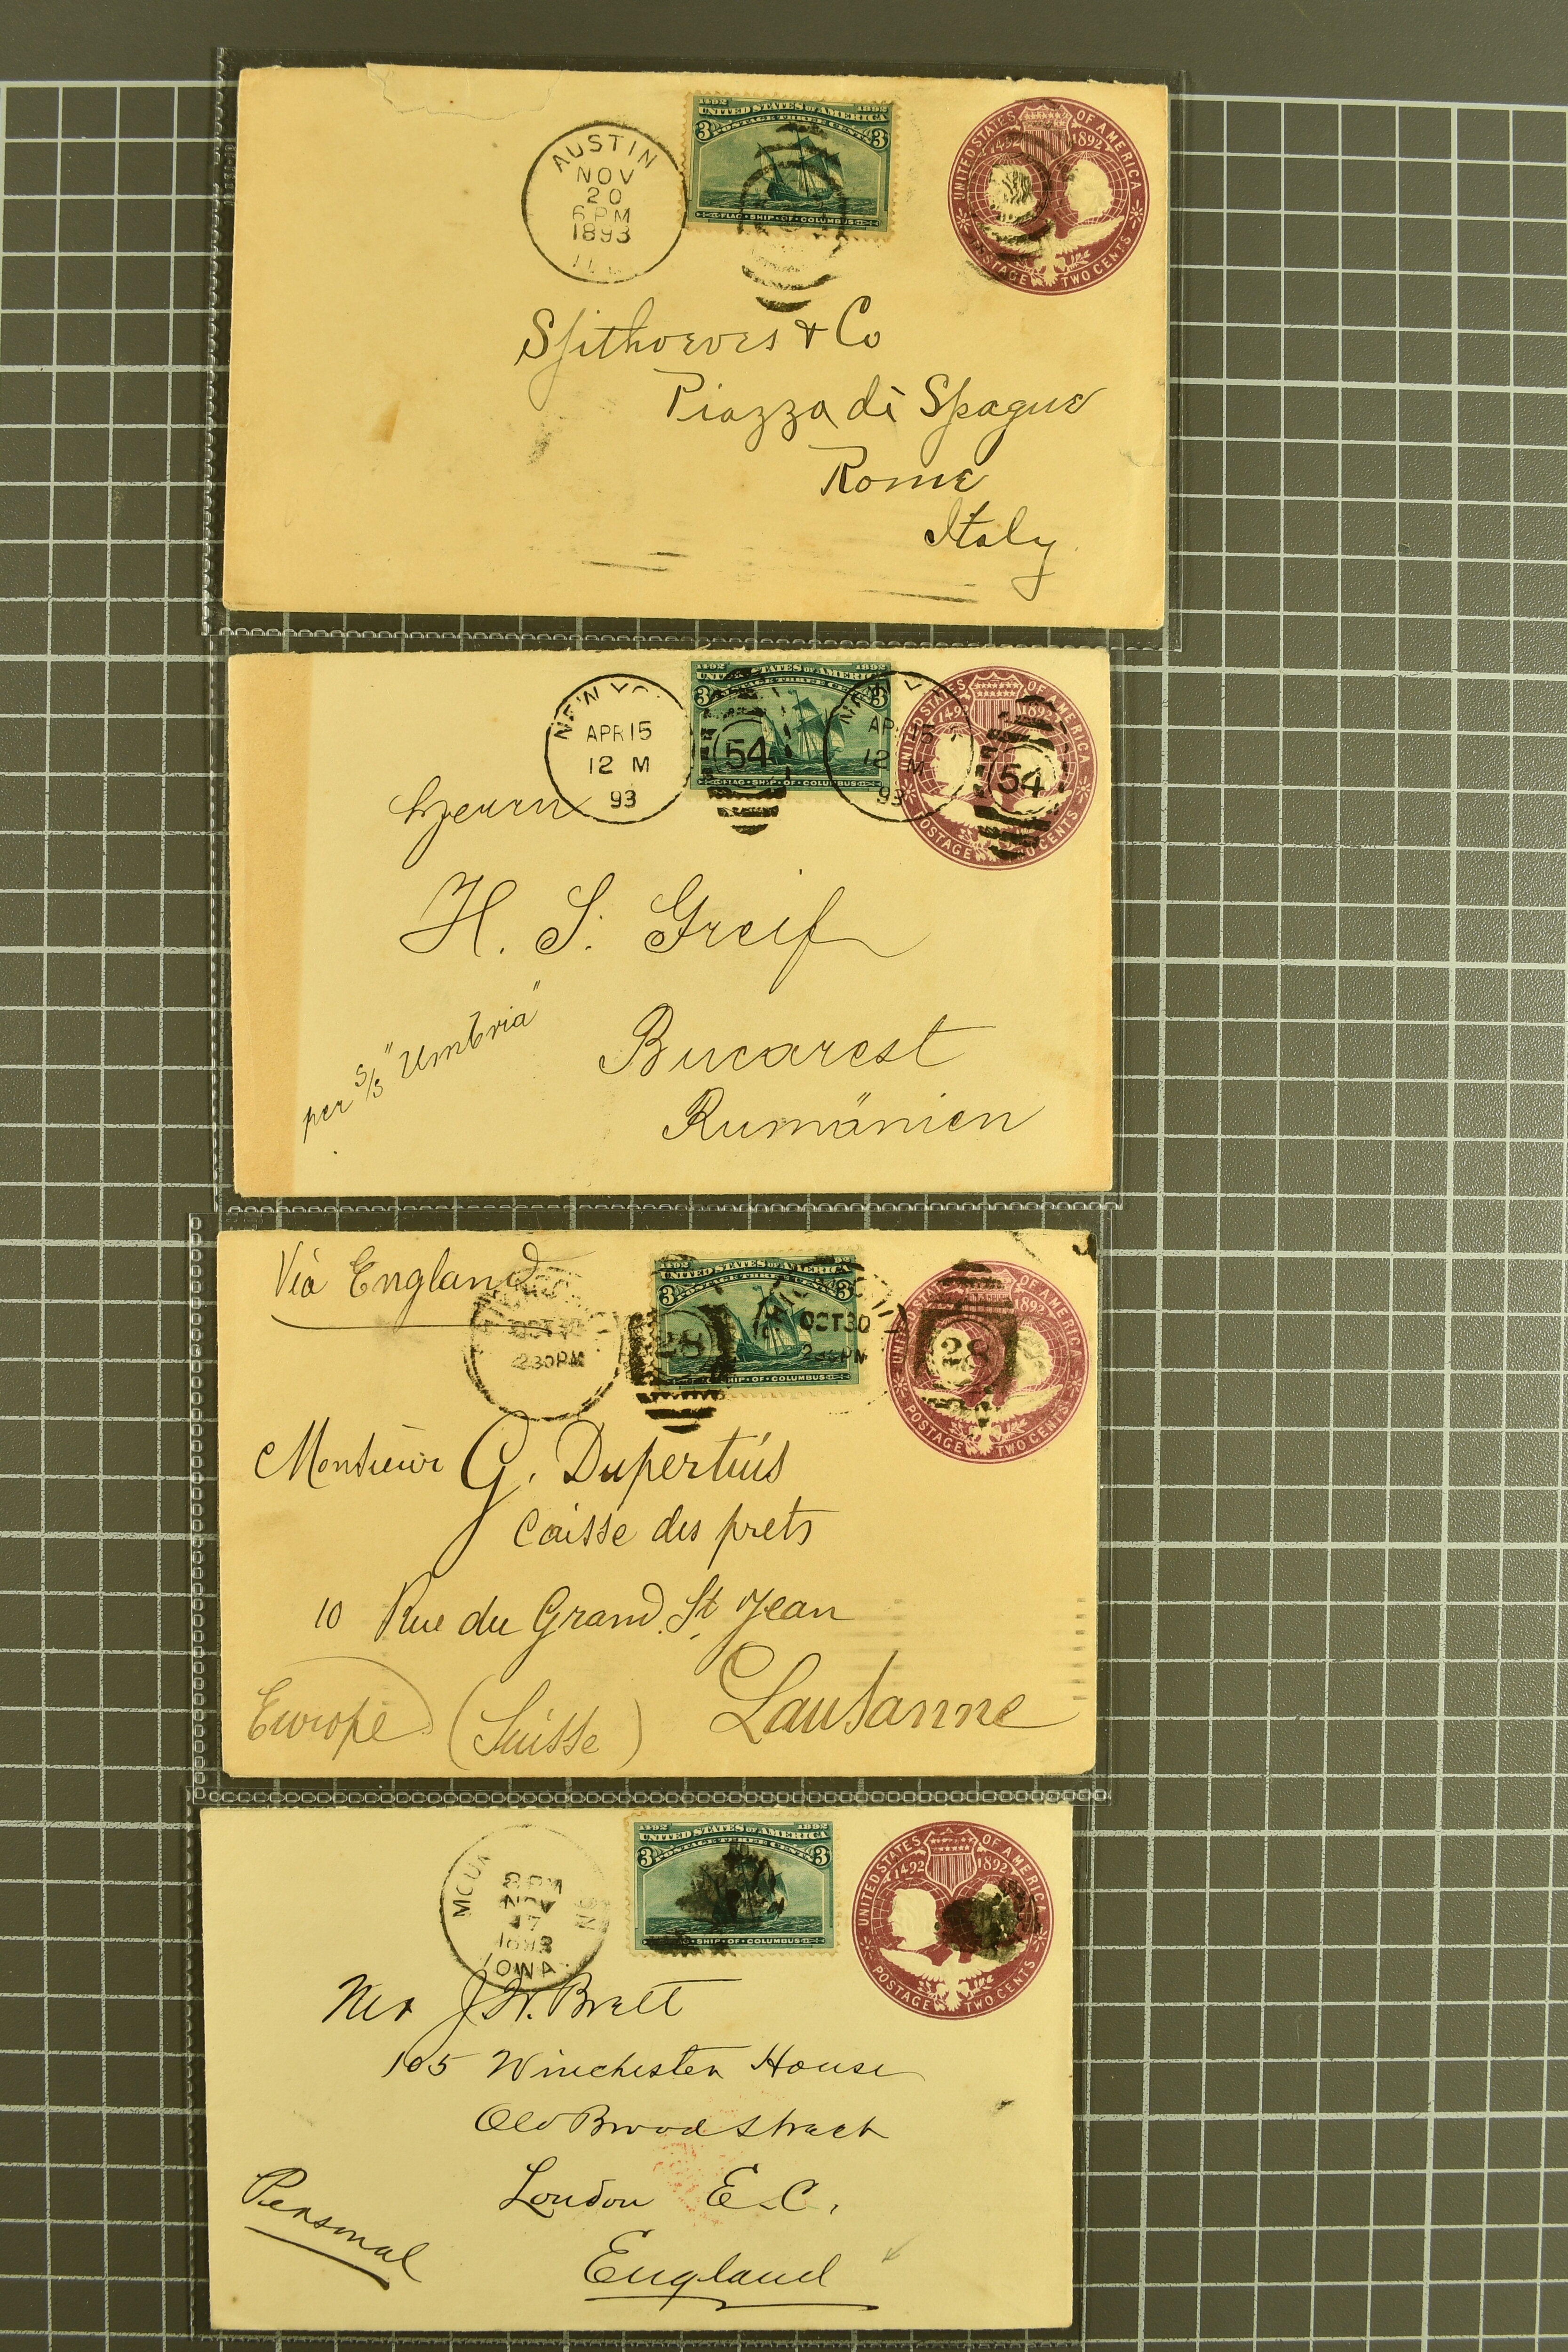 AUSTIN
NOV
20
6 PM
1893
ILL
1492 1892
UNITED STATES OF AMERICA
3 POSTAGE THREE CENTS 3
FLAG-SHIP-OF-COLUMBUS
UNITED STATES OF AMERICA
1492 1892
POSTAGE TWO CENTS
Spithoeves & Co
Piazza di Spagne
Rome
Italy
NEW YO
APR 15
12 M
93
1492 1892
STATES OF AMERICA
POSTAGE THREE CEN
3 3
54
FLAG-SHIP-OF-COLUMBUS
NEW Y
AP 15
12 M
93
UNITED STATES OF AMERICA
1492 1892
54
POSTAGE TWO CENTS
Herrn
H. S. Greif
per S/S "Umbria"
Bucarest
Rumänien
Via England
OCT 30
230PM
28
UNITED STATES OF AMERICA
3 POSTAGE THREE CENTS 3
SHIP-OF-COLUMBUS
OCT 30
230PM
UNITED STATES OF AMERICA
1892
28
POSTAGE TWO CENTS
Monsieur G. Dupertuis
Caisse des prets
10 Rue du Grand St Jean
Lausanne
Europe (Suisse)
MOUN
8 PM
NOV
17
1893
IOWA
1492 1892
UNITED STATES OF AMERICA
3 POSTAGE THREE CENTS 3
SHIP-OF-COLUMBUS
UNITED STATES OF AMERICA
1492 1892
POSTAGE TWO CENTS
Mr J. W. Brett
105 Winchester House
Old Broad Street
London E.C.
England
Personal